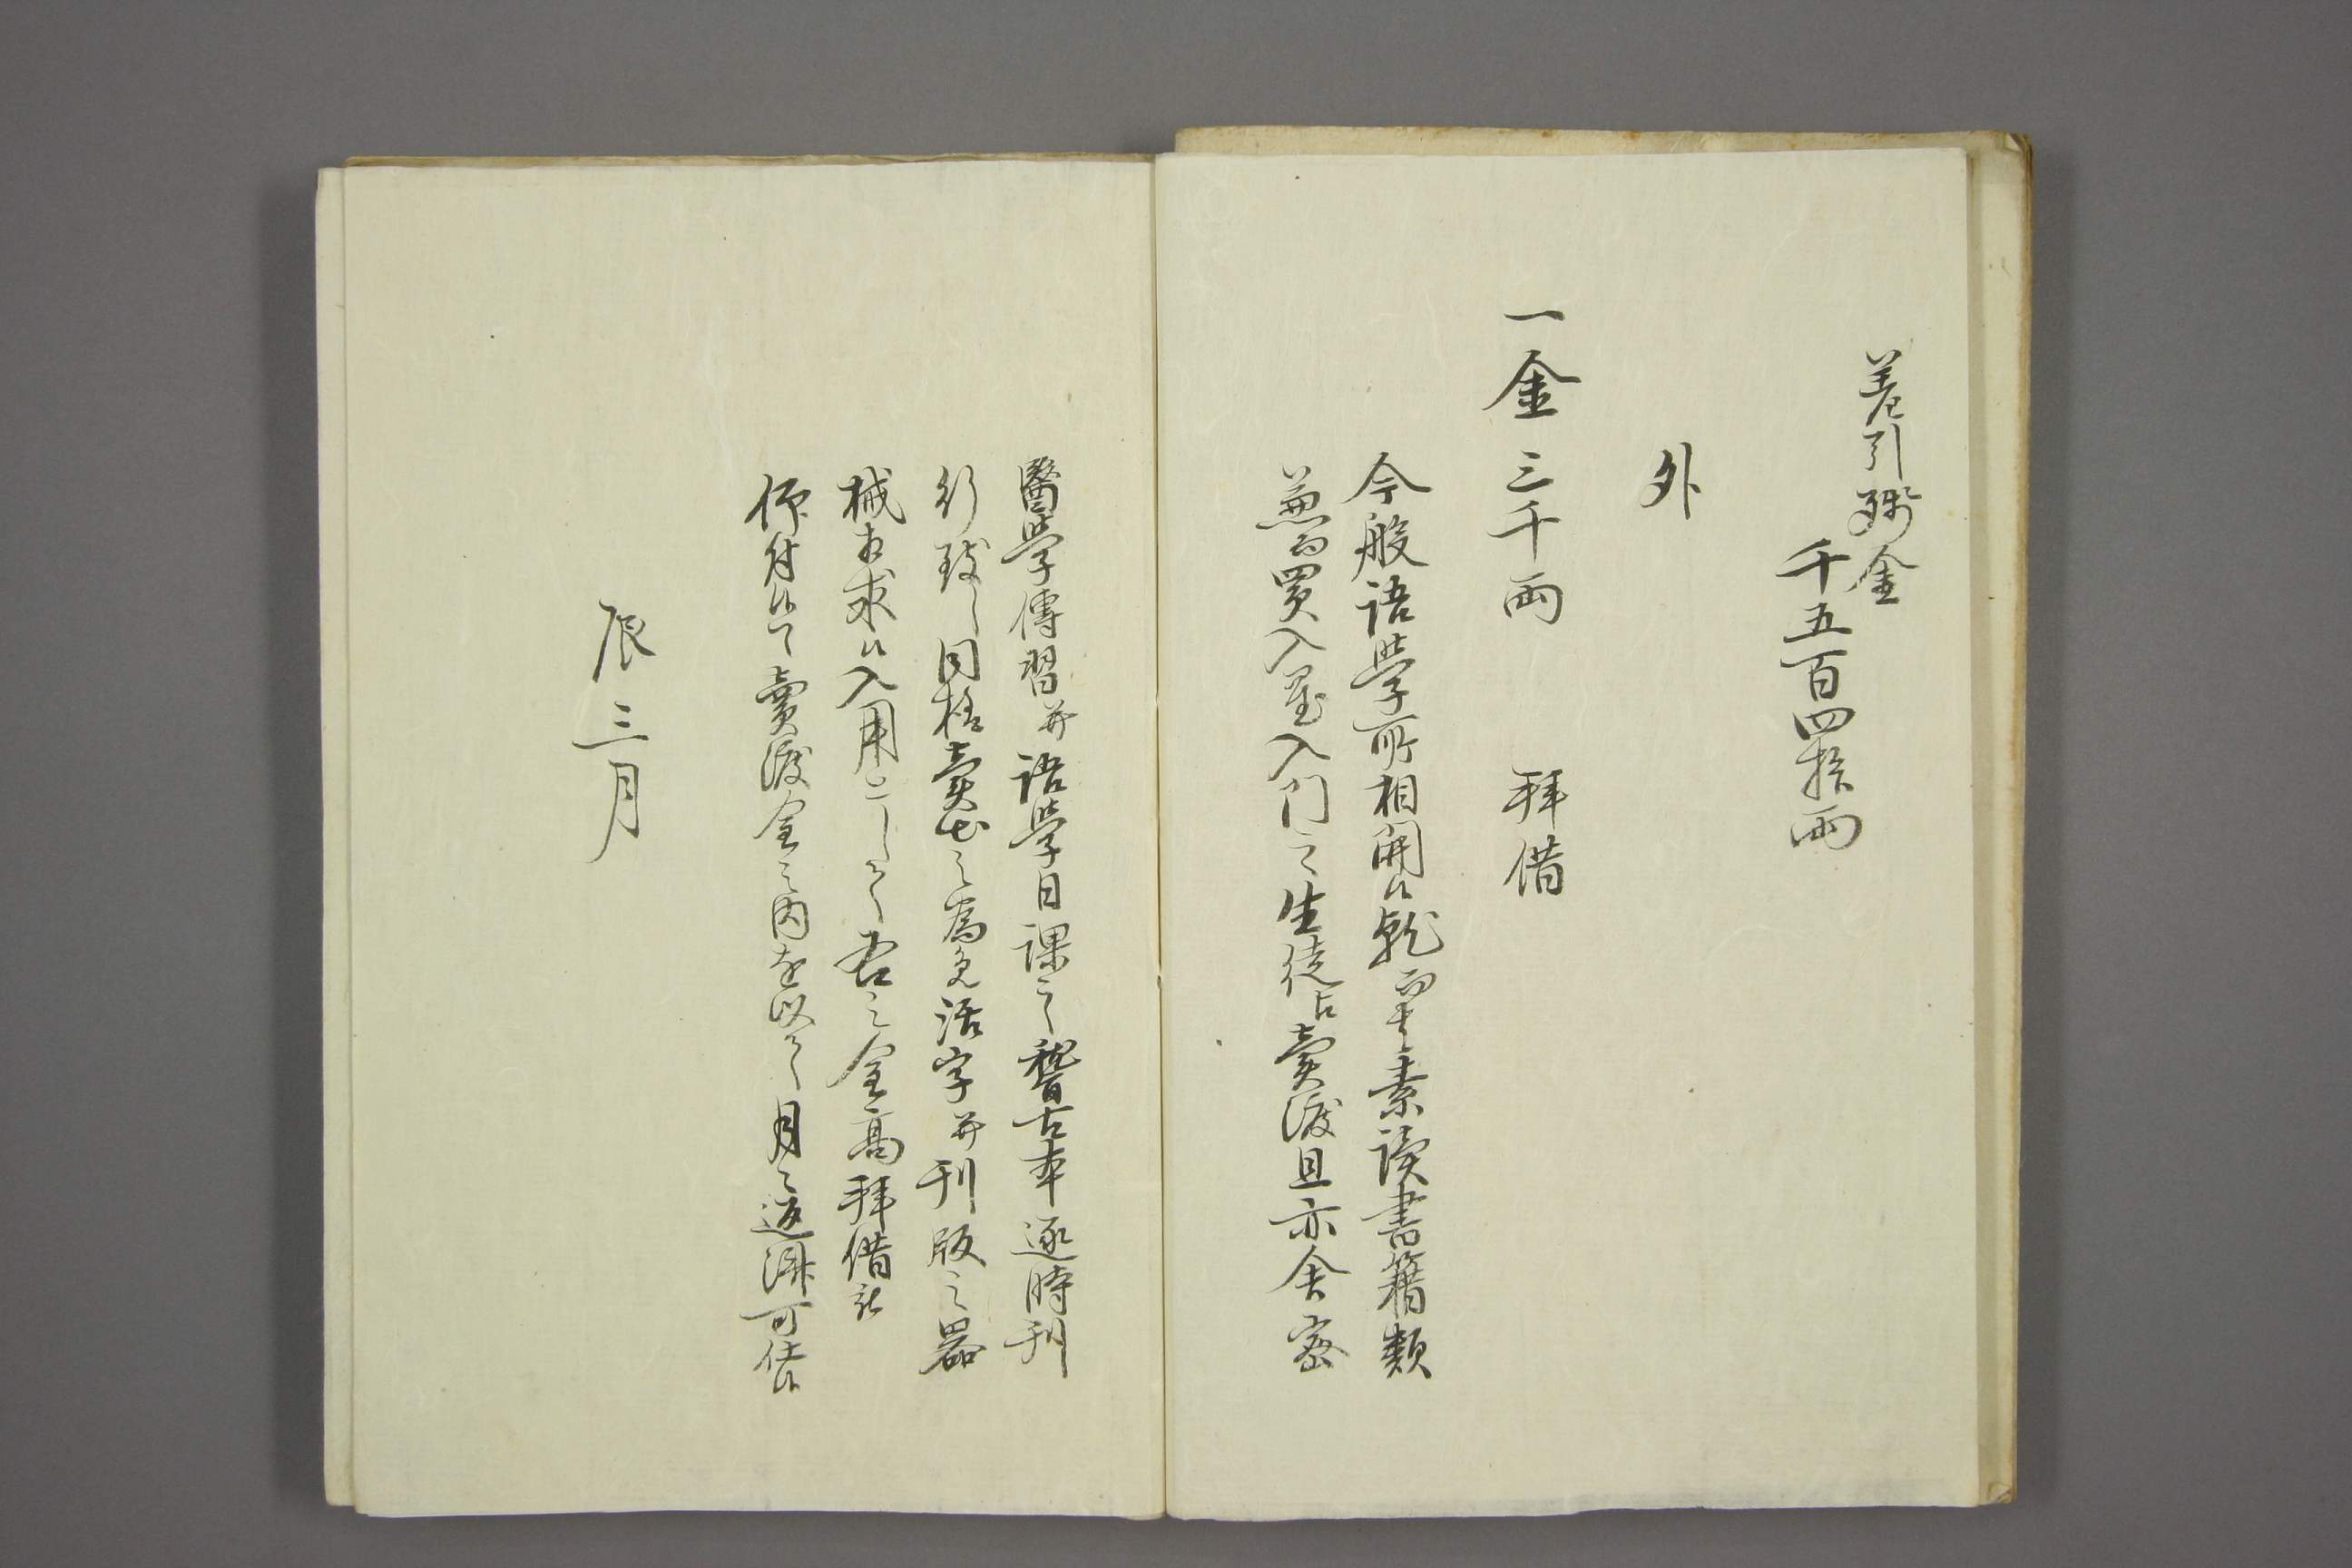 差引残金
千五百四拾両
外
一金三千両　拝借
今般語学所相開候就而者素読書籍類
兼而買入置入門之生徒江売渡且亦舎密
醫學傳習并語學日課之稽古本逐時刊
行致し同様売出之為メ活字并刊版之器
械相求候入用ニ　右之金高拝借被
仰付候ハヽ賣渡金之内を以て月々返済可仕候
辰三月